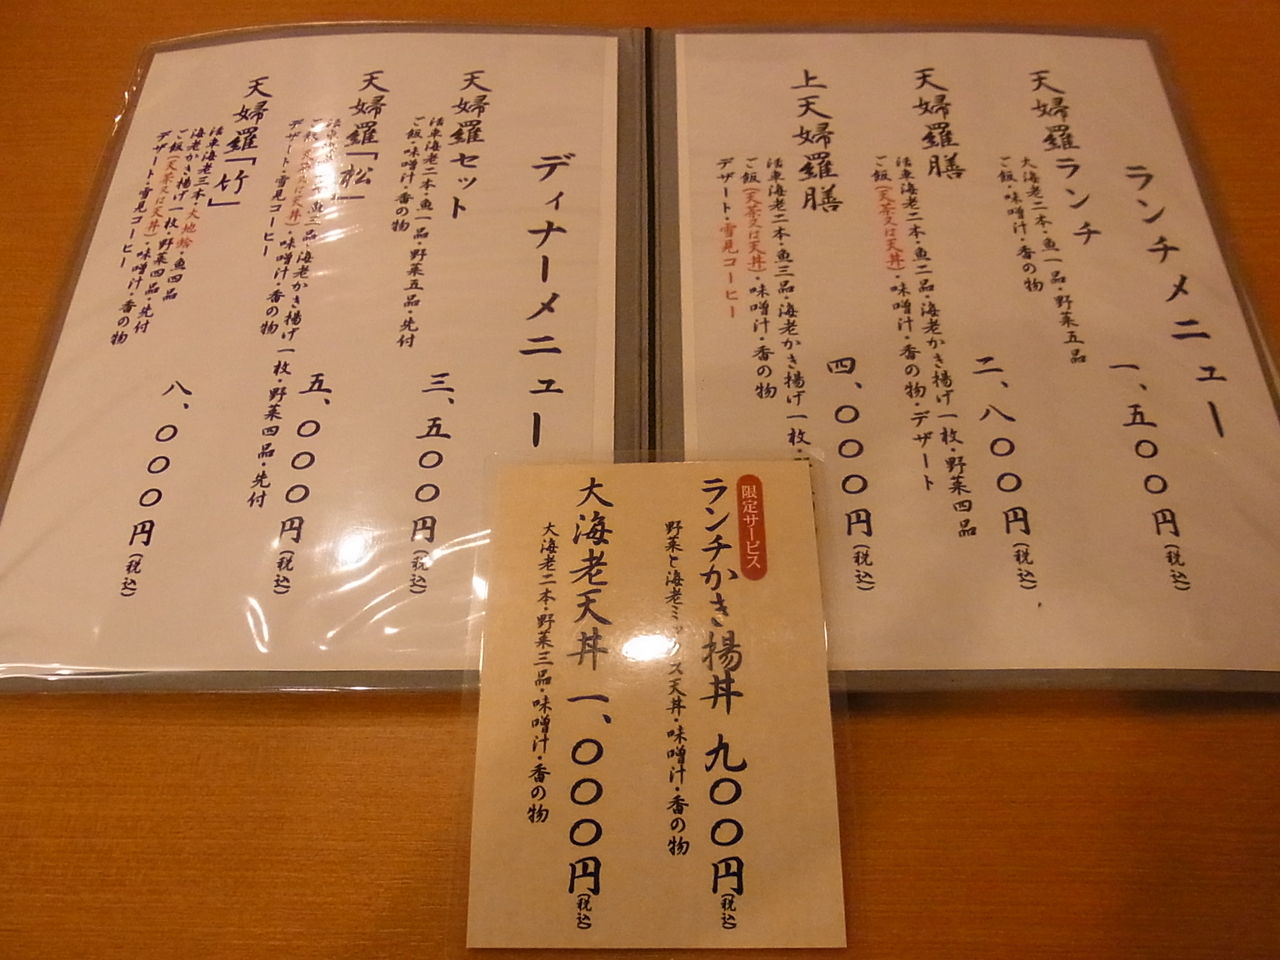 ランチメニュー
天婦羅ランチ
大海老二本・魚一品・野菜五品
ご飯・味噌汁・香の物
一、五〇〇円(税込)
天婦羅膳
活車海老二本・魚二品・海老かき揚げ一枚・野菜四品
ご飯(天茶又は天丼)・味噌汁・香の物・デザート
二、八〇〇円(税込)
上天婦羅膳
活車海老二本・魚三品・海老かき揚げ一枚・
ご飯(天茶又は天丼)・味噌汁・香の物
デザート・雪見コーヒー
四、〇〇〇円(税込)
ディナーメニュー
天婦羅セット
活車海老二本・魚一品・野菜五品・先付
ご飯・味噌汁・香の物
三、五〇〇円(税込)
天婦羅「松」
活車海老 本・魚三品・海老かき揚げ一枚・野菜四品・先付
ご飯(天茶又は天丼)・味噌汁・香の物
デザート・雪見コーヒー
五、〇〇〇円(税込)
天婦羅「竹」
活車海老三本・大地蛤・魚四品
海老かき揚げ一枚・野菜四品・先付
ご飯(天茶又は天丼)・味噌汁・香の物
デザート・雪見コーヒー
八、〇〇〇円(税込)
限定サービス
ランチかき揚丼 九〇〇円(税込)
野菜と海老ミックス天丼・味噌汁・香の物
大海老天丼 一、〇〇〇円(税込)
大海老二本・野菜三品・味噌汁・香の物